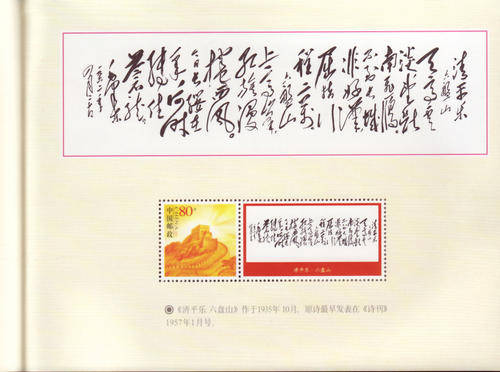 清平乐
六盘山
天高云
淡望断
南飞雁
不到长城
非好汉
屈指行
程二万
六盘山
上高峰
红旗漫
卷西风。
今日长缨在
手何时
缚住
苍龙
毛泽东
中国邮政
80分
清平乐·六盘山
《清平乐·六盘山》作于1935年10月，原诗最早发表在《诗刊》
1957年1月号。